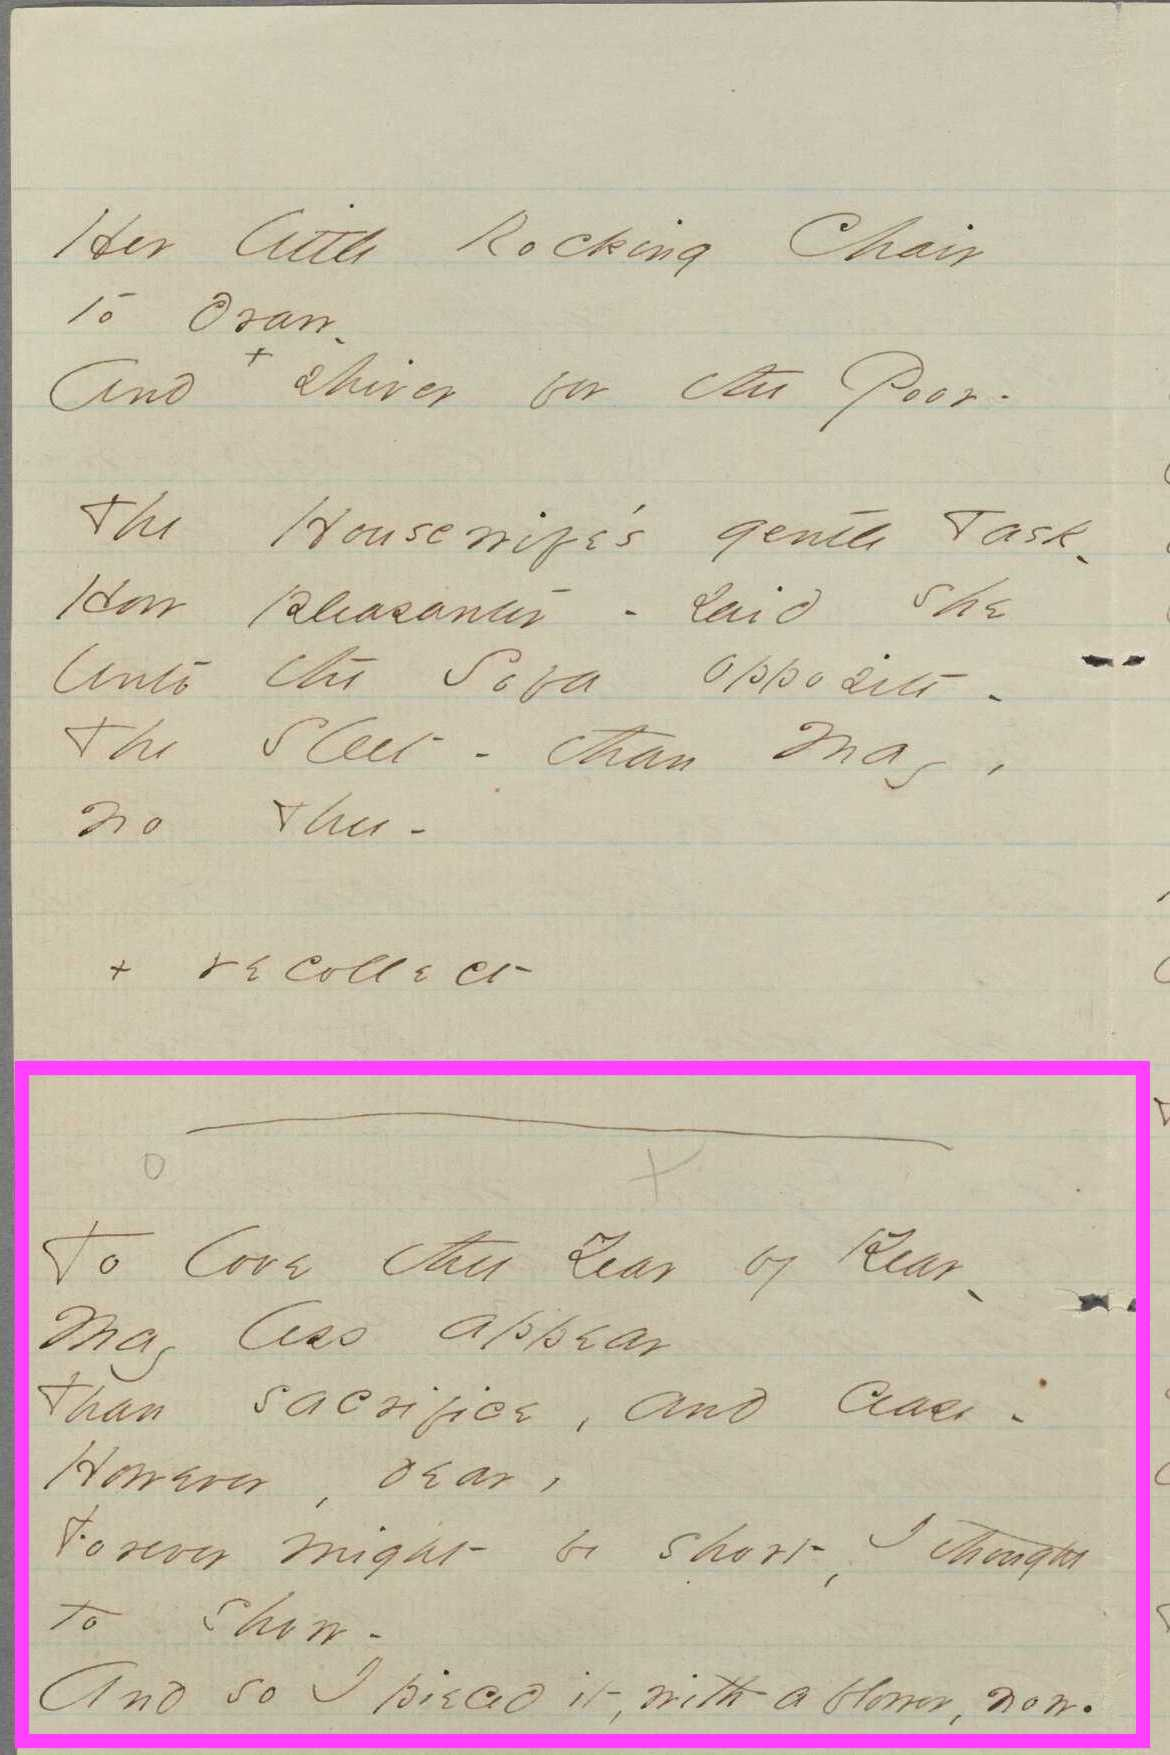 Her little Rocking Chair
To Draw.
And + shiver for the Poor -
The Housewife's gentle Task.
How pleasanter - said she
Unto the Sofa opposite -
The Sleet - than May,
no Thee -
+ recollect
o +
To love thee Year by Year -
May less appear
Than sacrifice, and cease -
However, dear,
Forever might be short, I thought
to show -
And so I pieced it, with a flower, now.